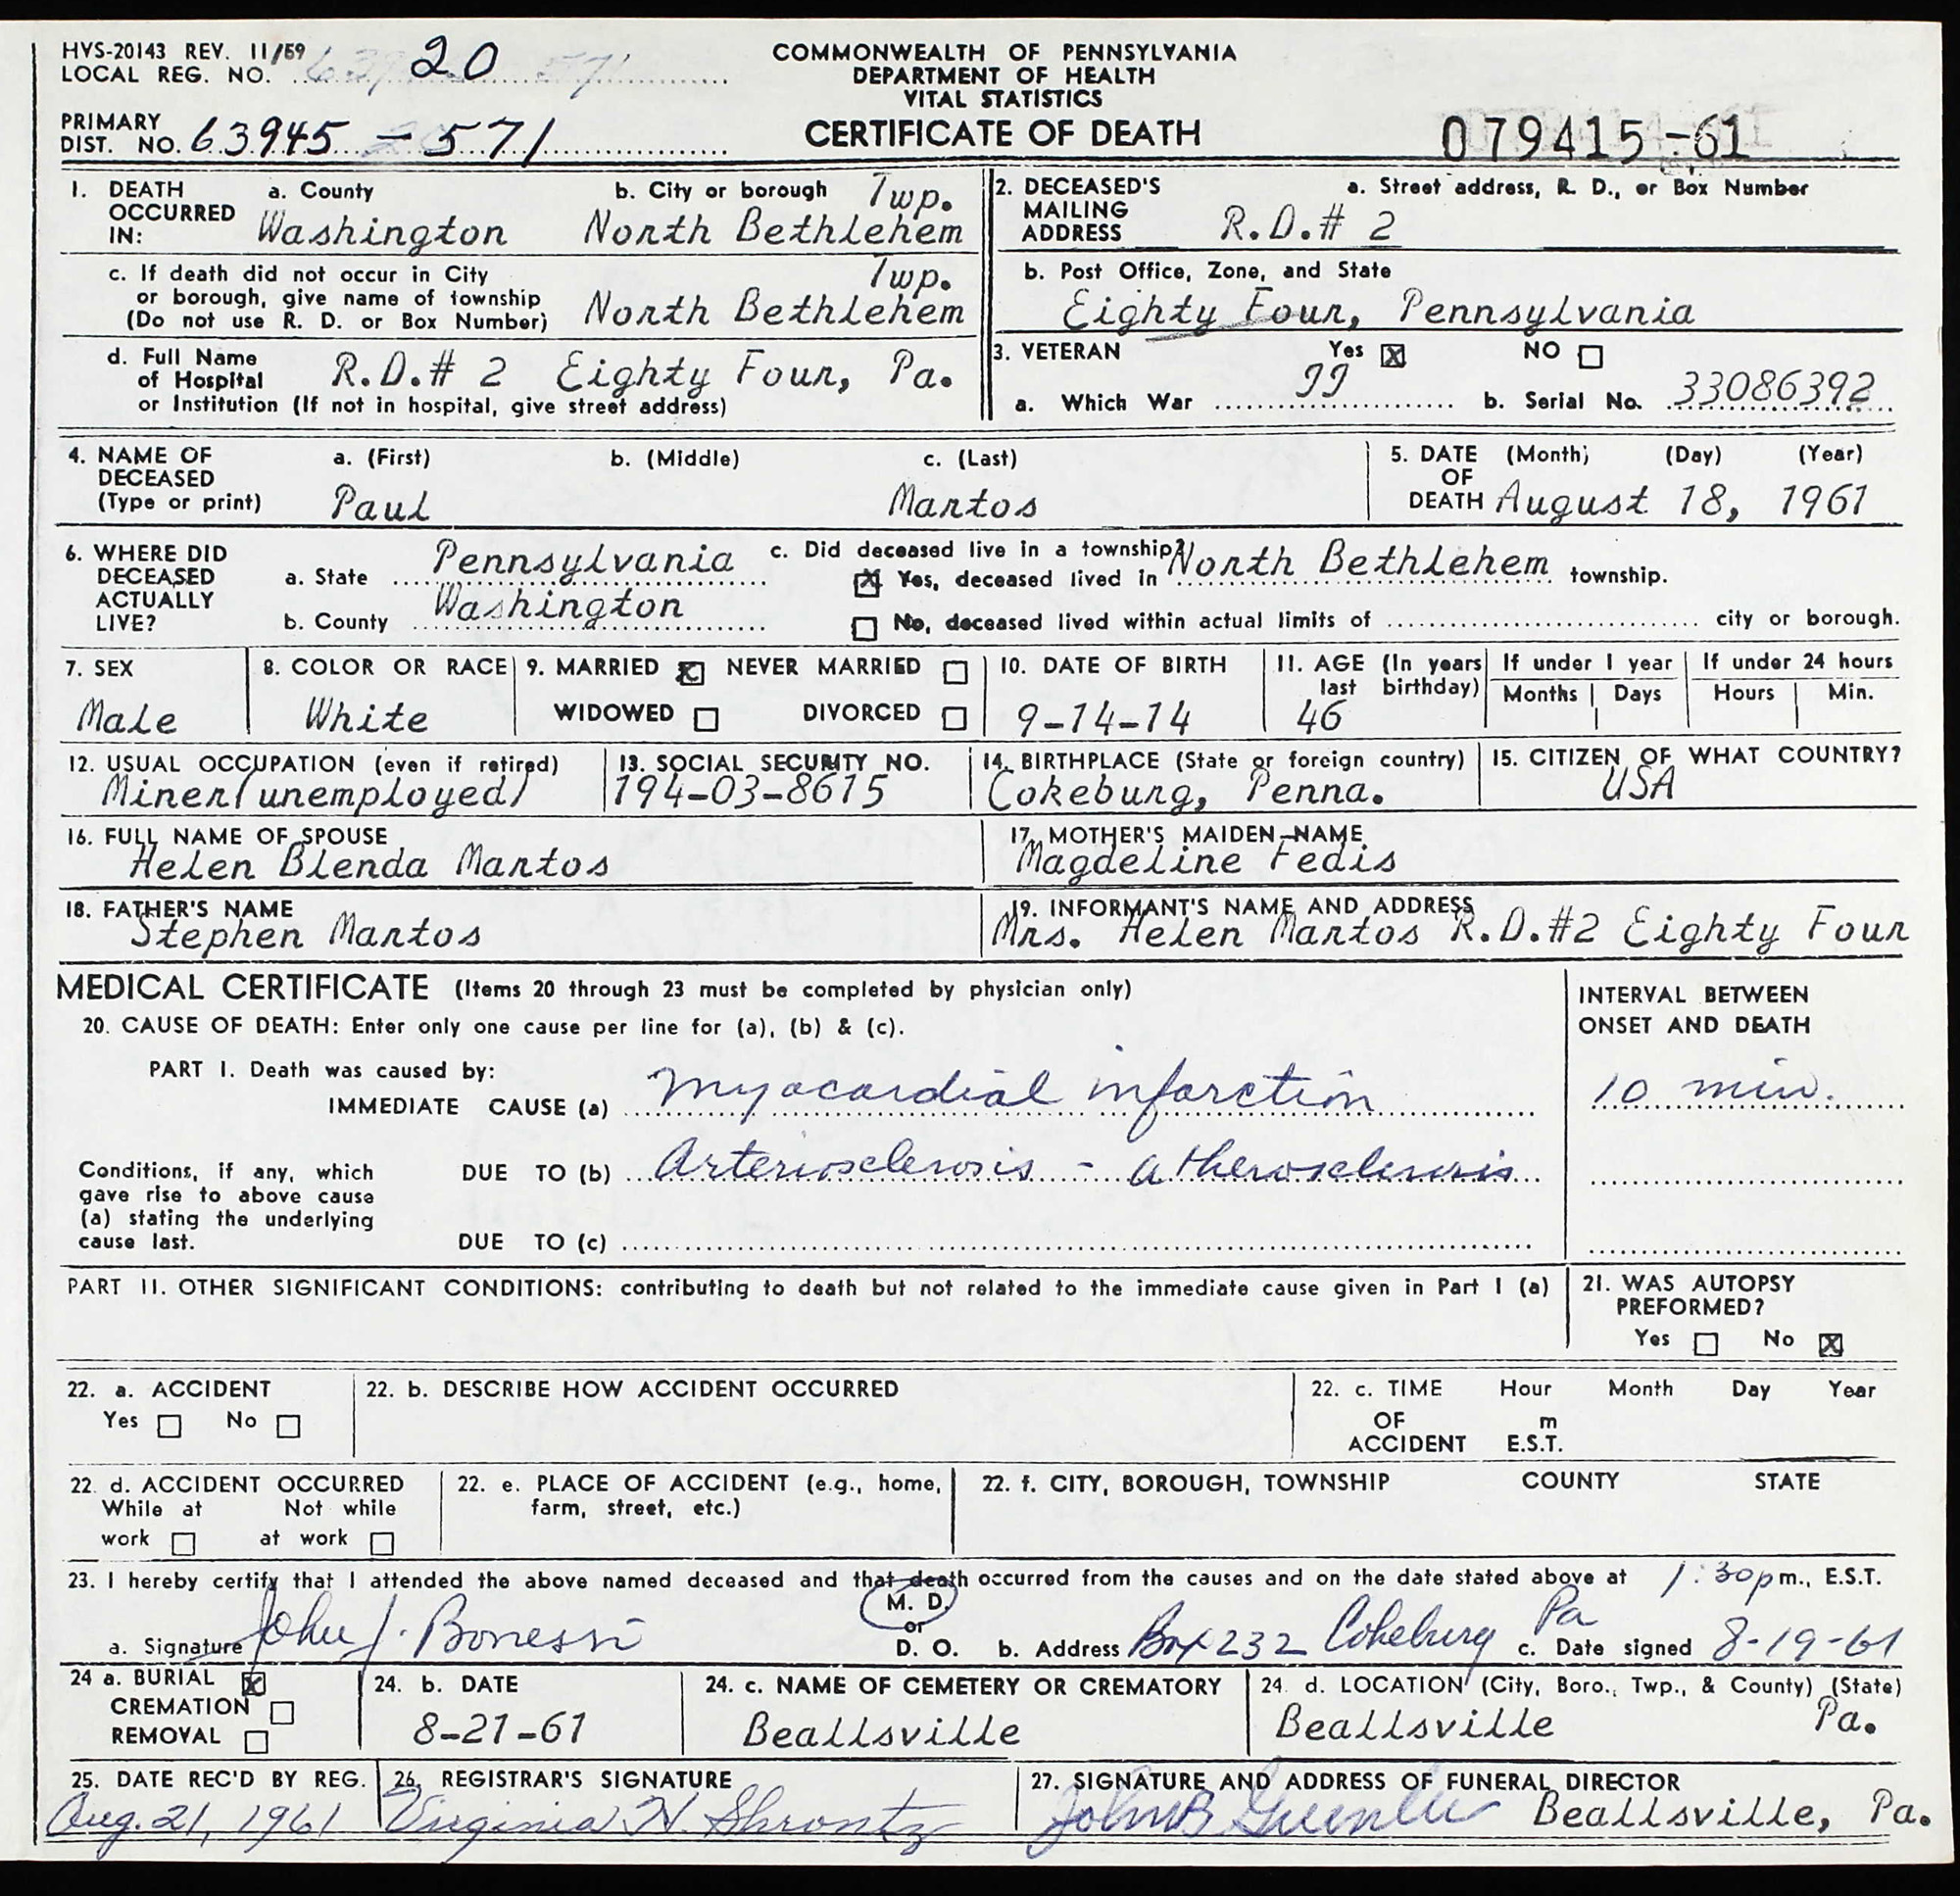 HVS-20143 REV. 11/59
LOCAL REG. NO. 20
COMMONWEALTH OF PENNSYLVANIA
DEPARTMENT OF HEALTH
VITAL STATISTICS
CERTIFICATE OF DEATH
PRIMARY
DIST. NO. 63945 - 571
079415-61
1. DEATH OCCURRED IN: a. County Washington
b. City or borough Twp. North Bethlehem
2. DECEASED'S MAILING ADDRESS a. Street address, R. D., or Box Number
R.D.# 2
c. If death did not occur in City
or borough, give name of township
(Do not use R. D. or Box Number)
Twp. North Bethlehem
b. Post Office, Zone, and State
Eighty Four, Pennsylvania
d. Full Name
of Hospital
or Institution (If not in hospital, give street address)
R.D.# 2 Eighty Four, Pa.
3. VETERAN Yes X NO
a. Which War II b. Serial No. 33086392
4. NAME OF DECEASED (Type or print)
a. (First) b. (Middle) c. (Last)
Paul Martos
5. DATE OF DEATH (Month) (Day) (Year)
August 18, 1961
6. WHERE DID DECEASED ACTUALLY LIVE?
a. State Pennsylvania
b. County Washington
c. Did deceased live in a township?
X Yes, deceased lived in North Bethlehem township.
No, deceased lived within actual limits of city or borough.
7. SEX
Male
8. COLOR OR RACE
White
9. MARRIED X NEVER MARRIED
WIDOWED DIVORCED
10. DATE OF BIRTH
9-14-14
11. AGE (In years last birthday)
46
If under 1 year
Months Days
If under 24 hours
Hours Min.
12. USUAL OCCUPATION (even if retired)
Miner(unemployed)
13. SOCIAL SECURITY NO.
194-03-8615
14. BIRTHPLACE (State or foreign country)
Cokeburg, Penna.
15. CITIZEN OF WHAT COUNTRY?
USA
16. FULL NAME OF SPOUSE
Helen Blenda Martos
17. MOTHER'S MAIDEN NAME
Magdeline Fedis
18. FATHER'S NAME
Stephen Martos
19. INFORMANT'S NAME AND ADDRESS
Mrs. Helen Martos R.D.#2 Eighty Four
MEDICAL CERTIFICATE (Items 20 through 23 must be completed by physician only)
20. CAUSE OF DEATH: Enter only one cause per line for (a), (b) & (c).
INTERVAL BETWEEN
ONSET AND DEATH
PART I. Death was caused by:
IMMEDIATE CAUSE (a) Myocardial infarction 10 min.
Conditions, if any, which
gave rise to above cause
(a) stating the underlying
cause last.
DUE TO (b) Arteriosclerosis - atherosclerosis
DUE TO (c)
PART II. OTHER SIGNIFICANT CONDITIONS: contributing to death but not related to the immediate cause given in Part I (a)
21. WAS AUTOPSY
PREFORMED?
Yes No X
22. a. ACCIDENT
Yes No
22. b. DESCRIBE HOW ACCIDENT OCCURRED
22. c. TIME OF ACCIDENT Hour Month Day Year
m
E.S.T.
22. d. ACCIDENT OCCURRED
While at work Not while at work
22. e. PLACE OF ACCIDENT (e.g., home,
farm, street, etc.)
22. f. CITY, BOROUGH, TOWNSHIP COUNTY STATE
23. I hereby certify that I attended the above named deceased and that death occurred from the causes and on the date stated above at 1:30 p m., E.S.T.
a. Signature John J. Bonessi
M. D.
or
D. O.
b. Address Box 232 Cokeburg Pa
c. Date signed 8-19-61
24 a. BURIAL X
CREMATION
REMOVAL
24. b. DATE
8-21-61
24. c. NAME OF CEMETERY OR CREMATORY
Beallsville
24. d. LOCATION (City, Boro., Twp., & County) (State)
Beallsville Pa.
25. DATE REC'D BY REG.
Aug. 21, 1961
26. REGISTRAR'S SIGNATURE
Virginia H. Shrontz
27. SIGNATURE AND ADDRESS OF FUNERAL DIRECTOR
John B Beallsville, Pa.